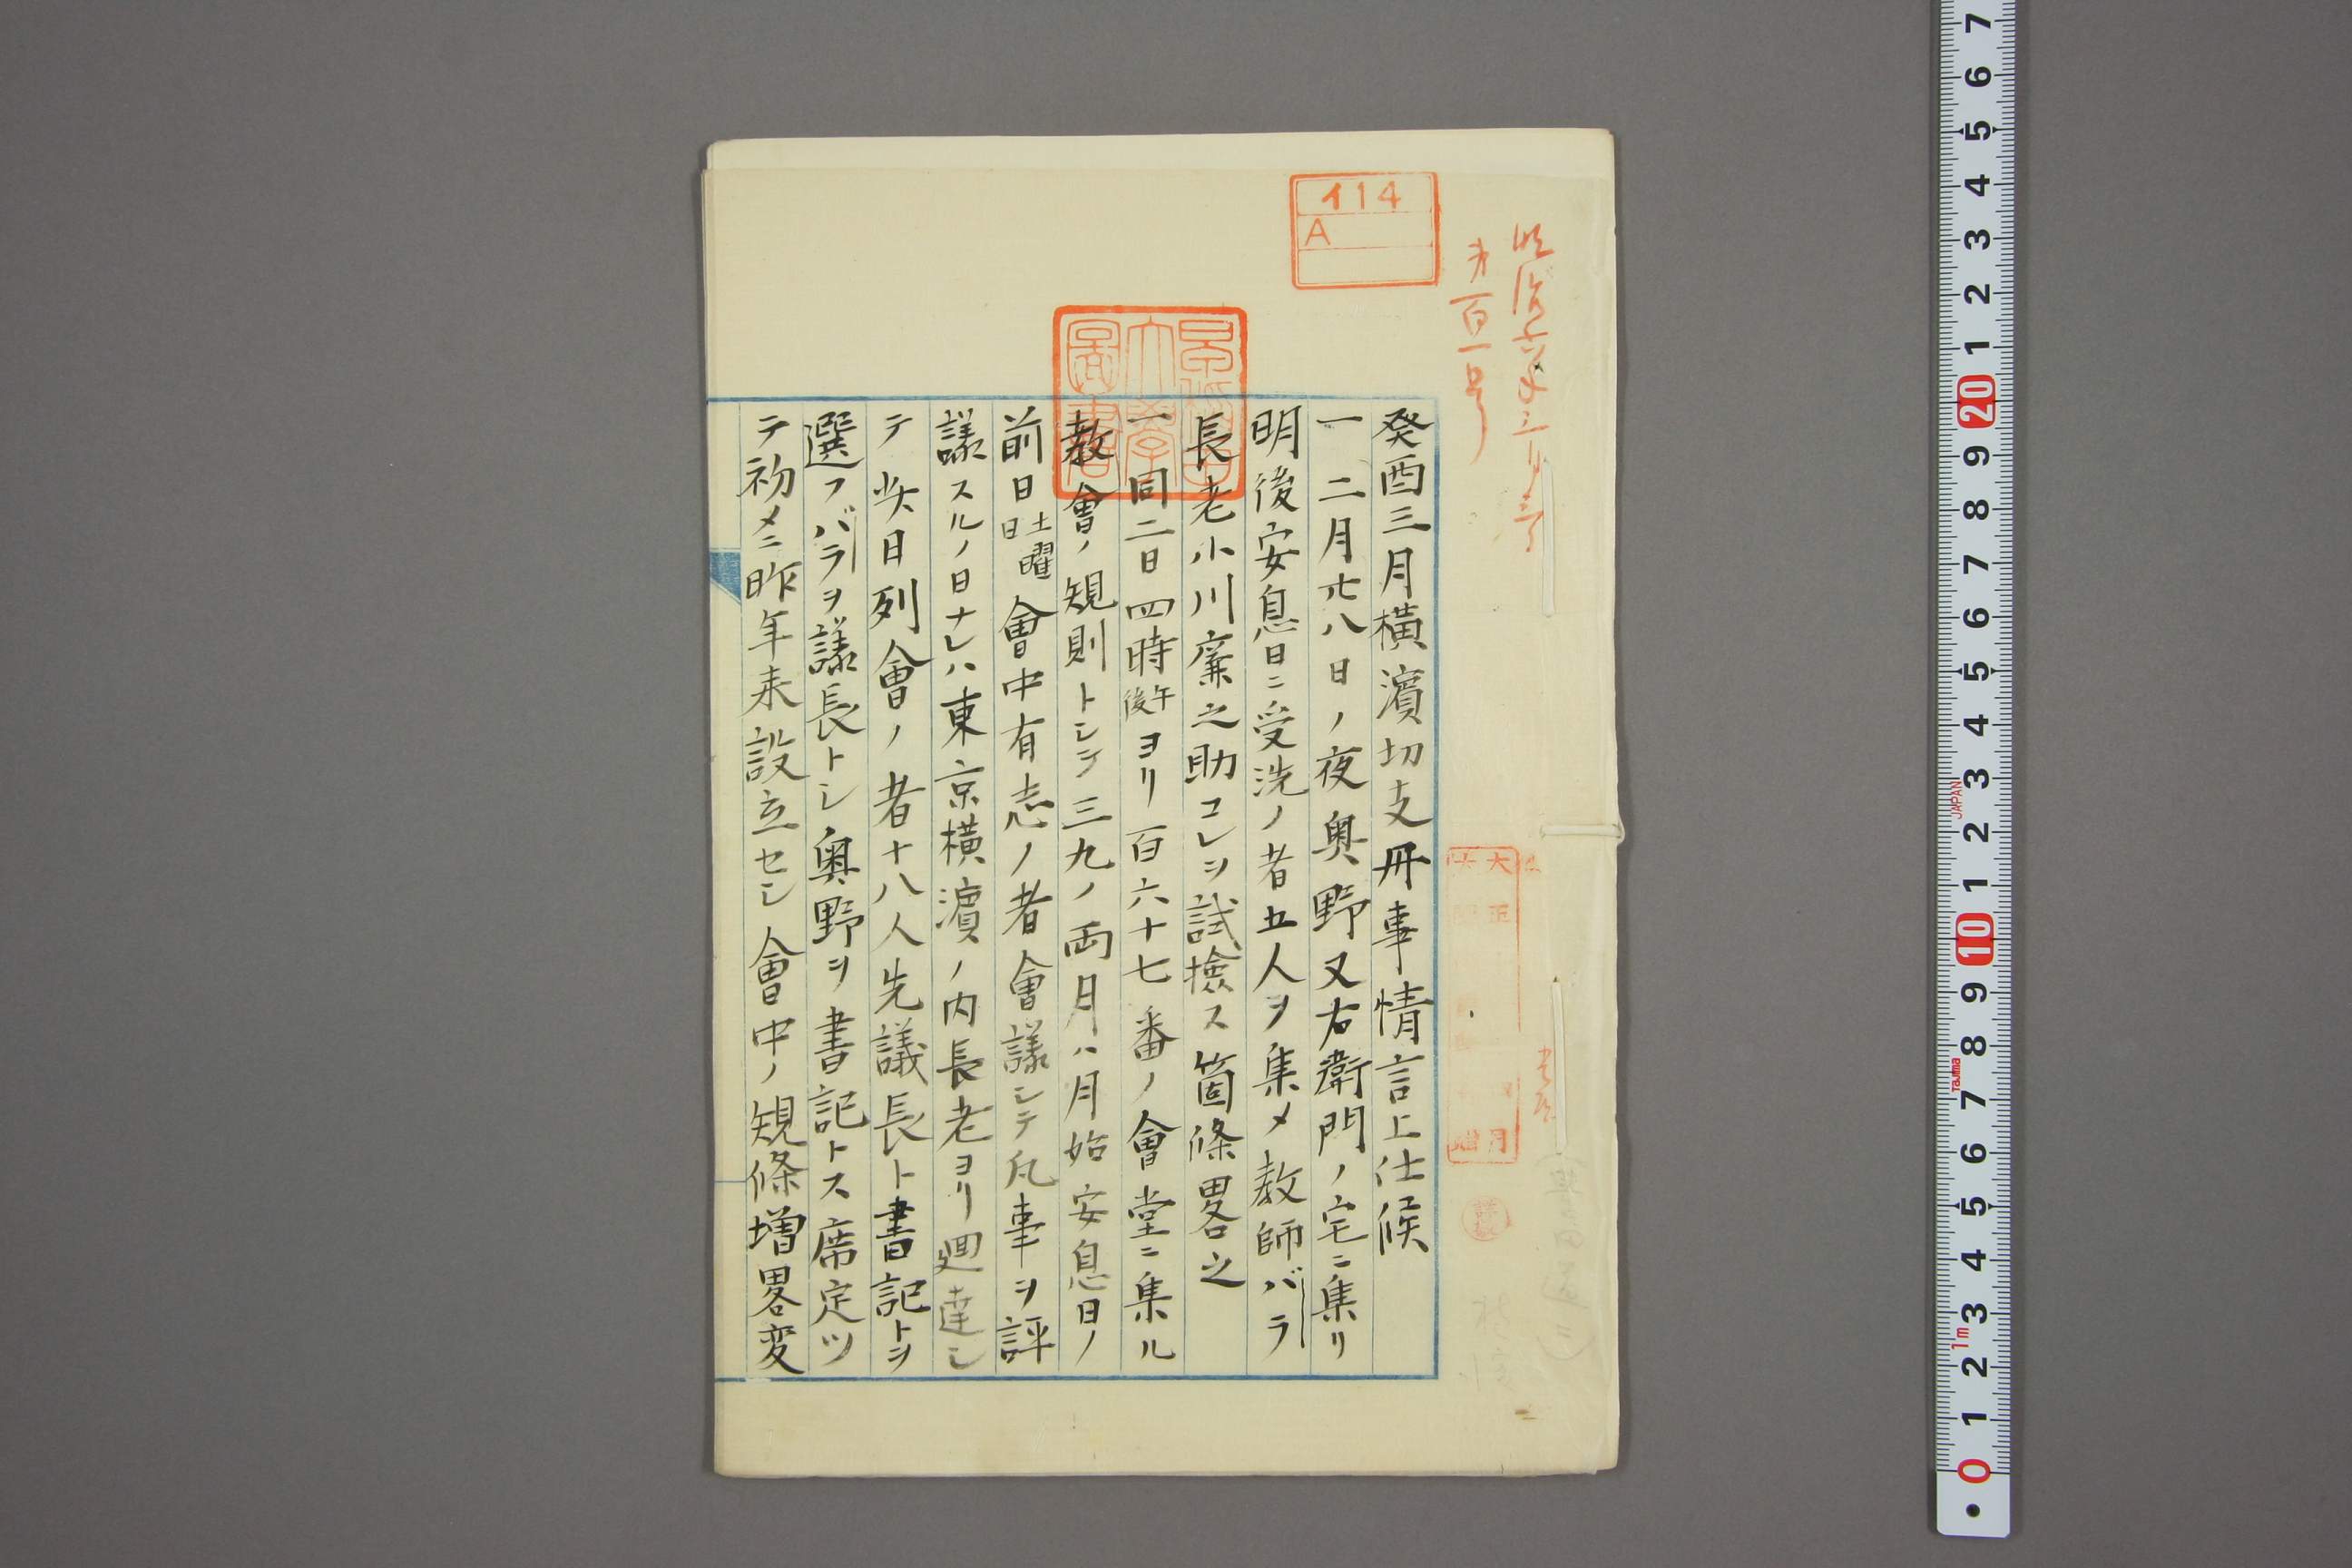 明治六年三月
第百一号
イ14
A
癸酉三月横濱切支丹事情言上仕候
一 二月廿八日ノ夜奥野又右衛門ノ宅ニ集リ
明後安息日ニ受洗ノ者五人ヲ集メ教師バラ
長老小川廉之助コレヲ試撿ス箇條畧之
一同二日四時午後ヨリ百六十七番ノ會堂ニ集ル
教會ノ規則トシテ三九ノ両月ハ月始安息日ノ
前日土曜日會中有志ノ者會議シテ凡事ヲ評
議スルノ日ナレハ東京横濱ノ内長老ヨリ廻達シ
テ此日列會ノ者十八人先議長ト書記トヲ
選フバラヲ議長トシ奥野ヲ書記トス席定ツ
テ初メニ昨年来設立セシ會中ノ規條増畧変
7 6 5 4 3 2 1 20 9 8 7 6 5 4 3 2 1 10 9 8 7 6 5 4 3 2 1 0
JAPAN
Tajima
1m